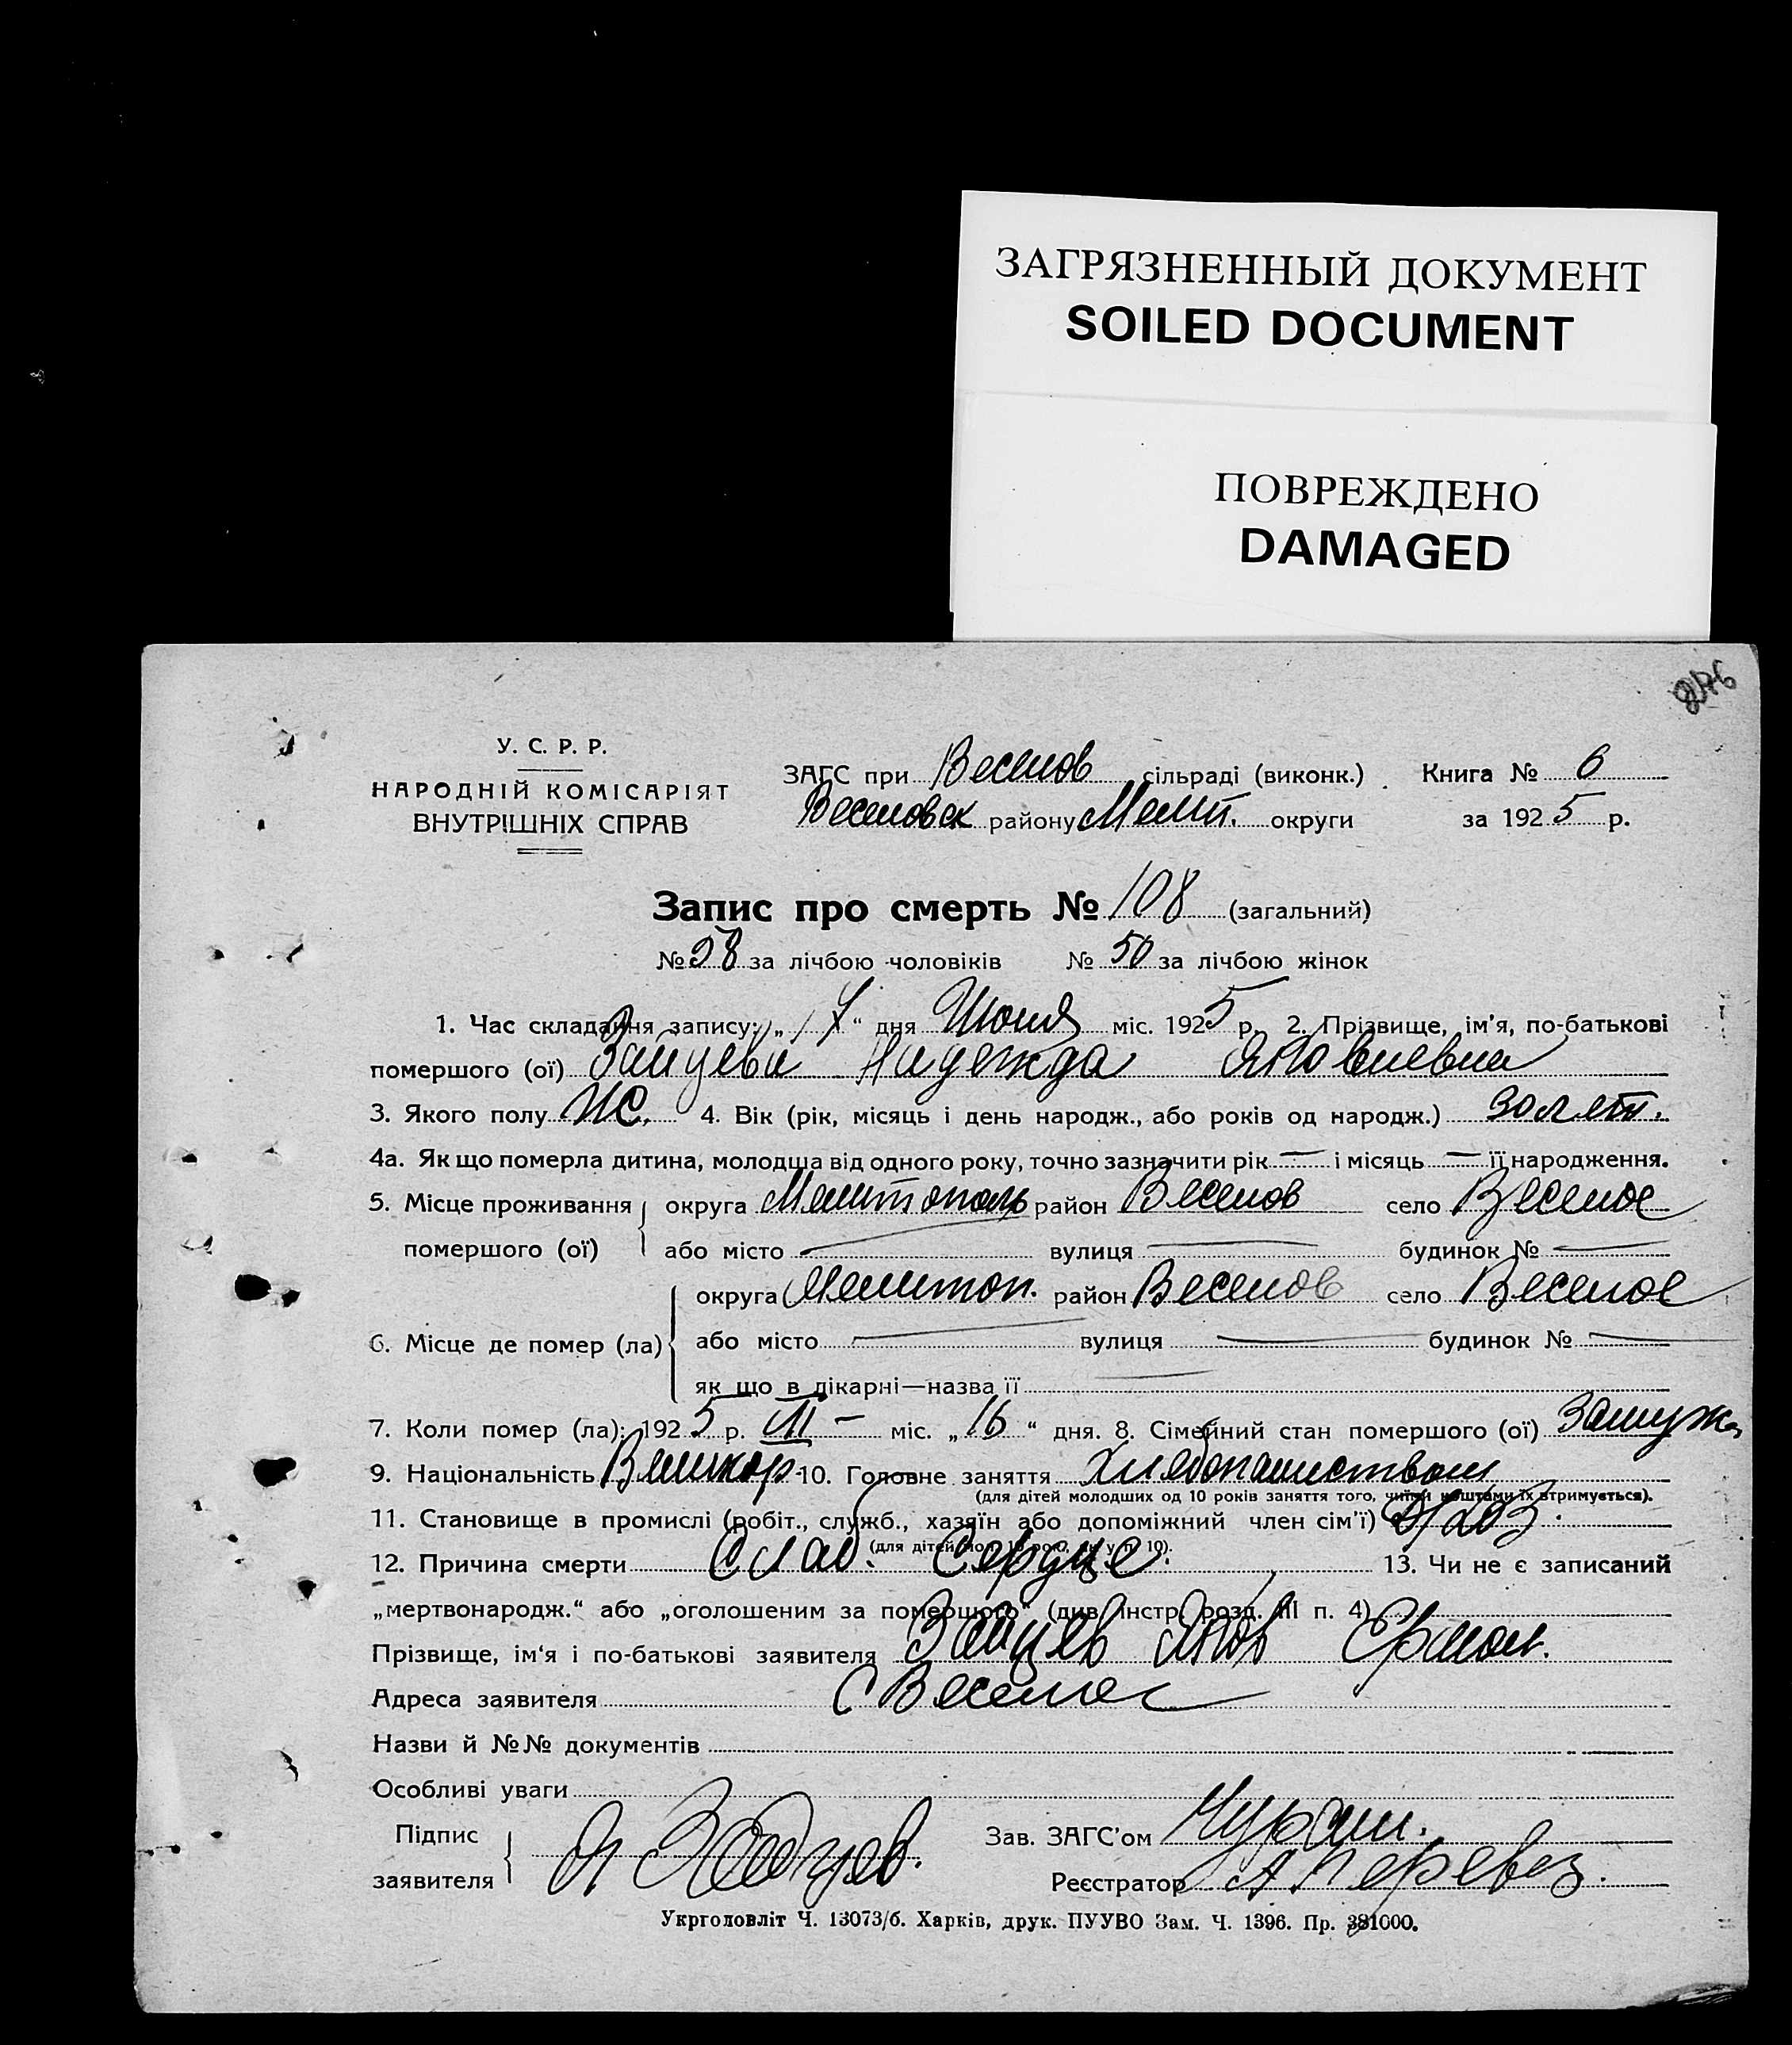 ЗАГРЯЗНЕННЫЙ ДОКУМЕНТ
SOILED DOCUMENT
ПОВРЕЖДЕНО
DAMAGED
У. С. Р. Р.
НАРОДНІЙ КОМІСАРІЯТ
ВНУТРІШНІХ СПРАВ
ЗАГС при Веселов сільраді (виконк.) Книга № 6
Веселовск району Мелит. округи за 1925 р.
Запис про смерть № 108 (загальний)
№ 58 за лічбою чоловіків № 50 за лічбою жінок
1. Час складання запису: „17“ дня Июня міс. 1925 р. 2. Прізвище, ім'я, по-батькові
помершого (ої) Зайцева Надежда Яковлевна
3. Якого полу Ж. 4. Вік (рік, місяць і день народж., або років од народж.) 30 лет.
4а. Як що померла дитина, молодша від одного року, точно зазначити рік — і місяць — її народження.
5. Місце проживання помершого (ої) округа Мелитополь район Веселов село Веселое
або місто — вулиця — будинок № —
6. Місце де помер (ла) округа Мелитоп. район Веселов село Веселое
або місто — вулиця — будинок № —
як що в лікарні—назва її —
7. Коли помер (ла): 1925 р. VI — міс. „16“ дня. 8. Сімейний стан помершого (ої) Замуж.
9. Національність Великор. 10. Головне заняття Хлебопашеством
(для дітей молодших од 10 років заняття того, чиїми коштами їх втримується).
11. Становище в промислі (робіт., служб., хазяїн або допоміжний член сім'ї)
(для дітей мол. 10 рок., як у п. 10).
12. Причина смерти Слаб. Сердце. 13. Чи не є записаний
„мертвонародж.“ або „оголошеним за помершого“ (див. Інстр. розд. III п. 4)
Прізвище, ім'я і по-батькові заявителя Зайцев Яков Ермол.
Адреса заявителя С Веселое
Назви й №№ документів
Особливі уваги
Підпис заявителя Я Зайцев. Зав. ЗАГС'ом
Реєстратор
Укрголовліт Ч. 13073/б. Харків, друк. ПУУВО Зам. Ч. 1396. Пр. 381000.